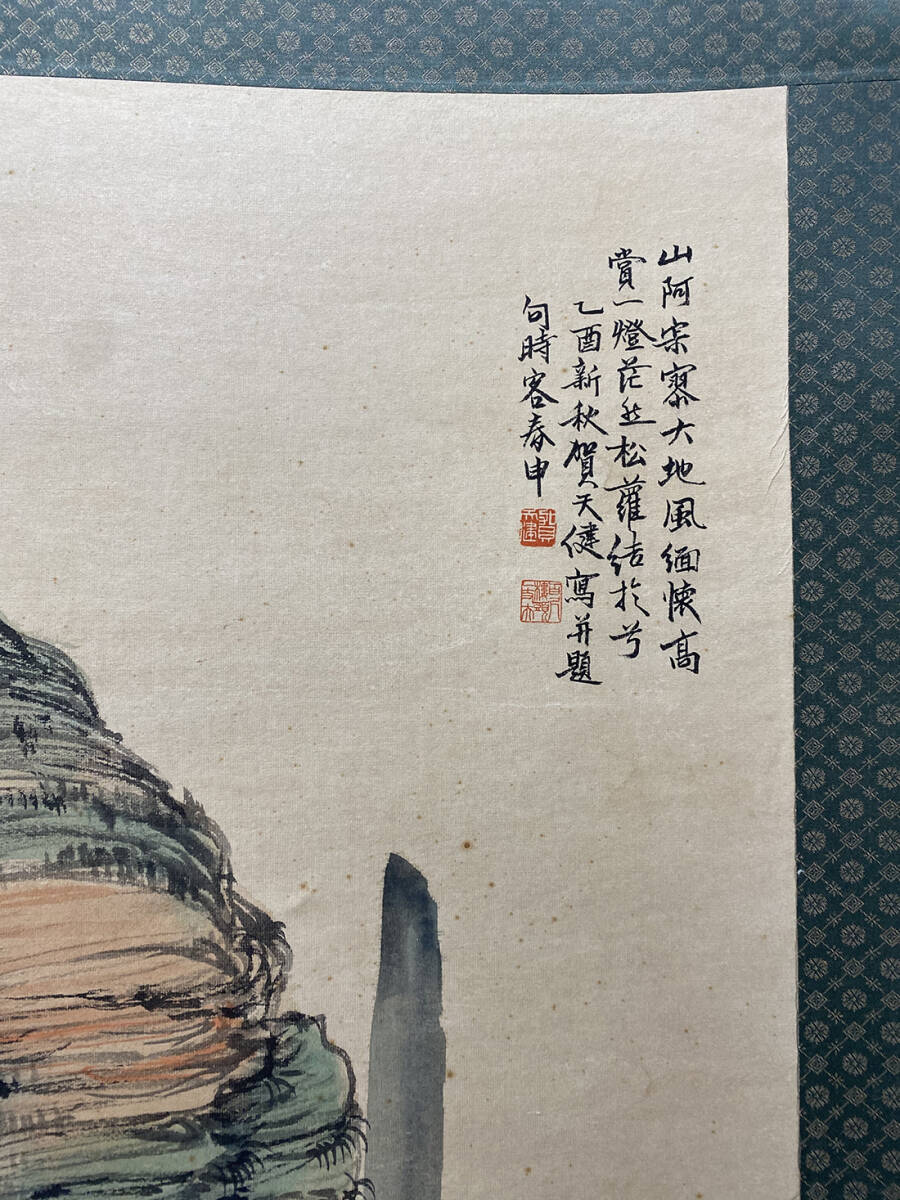 山阿宋寥大地風緬懷高
賞一燈茫然松蘿結於兮
乙酉新秋賀天健寫并題
句時客春申
賀天健